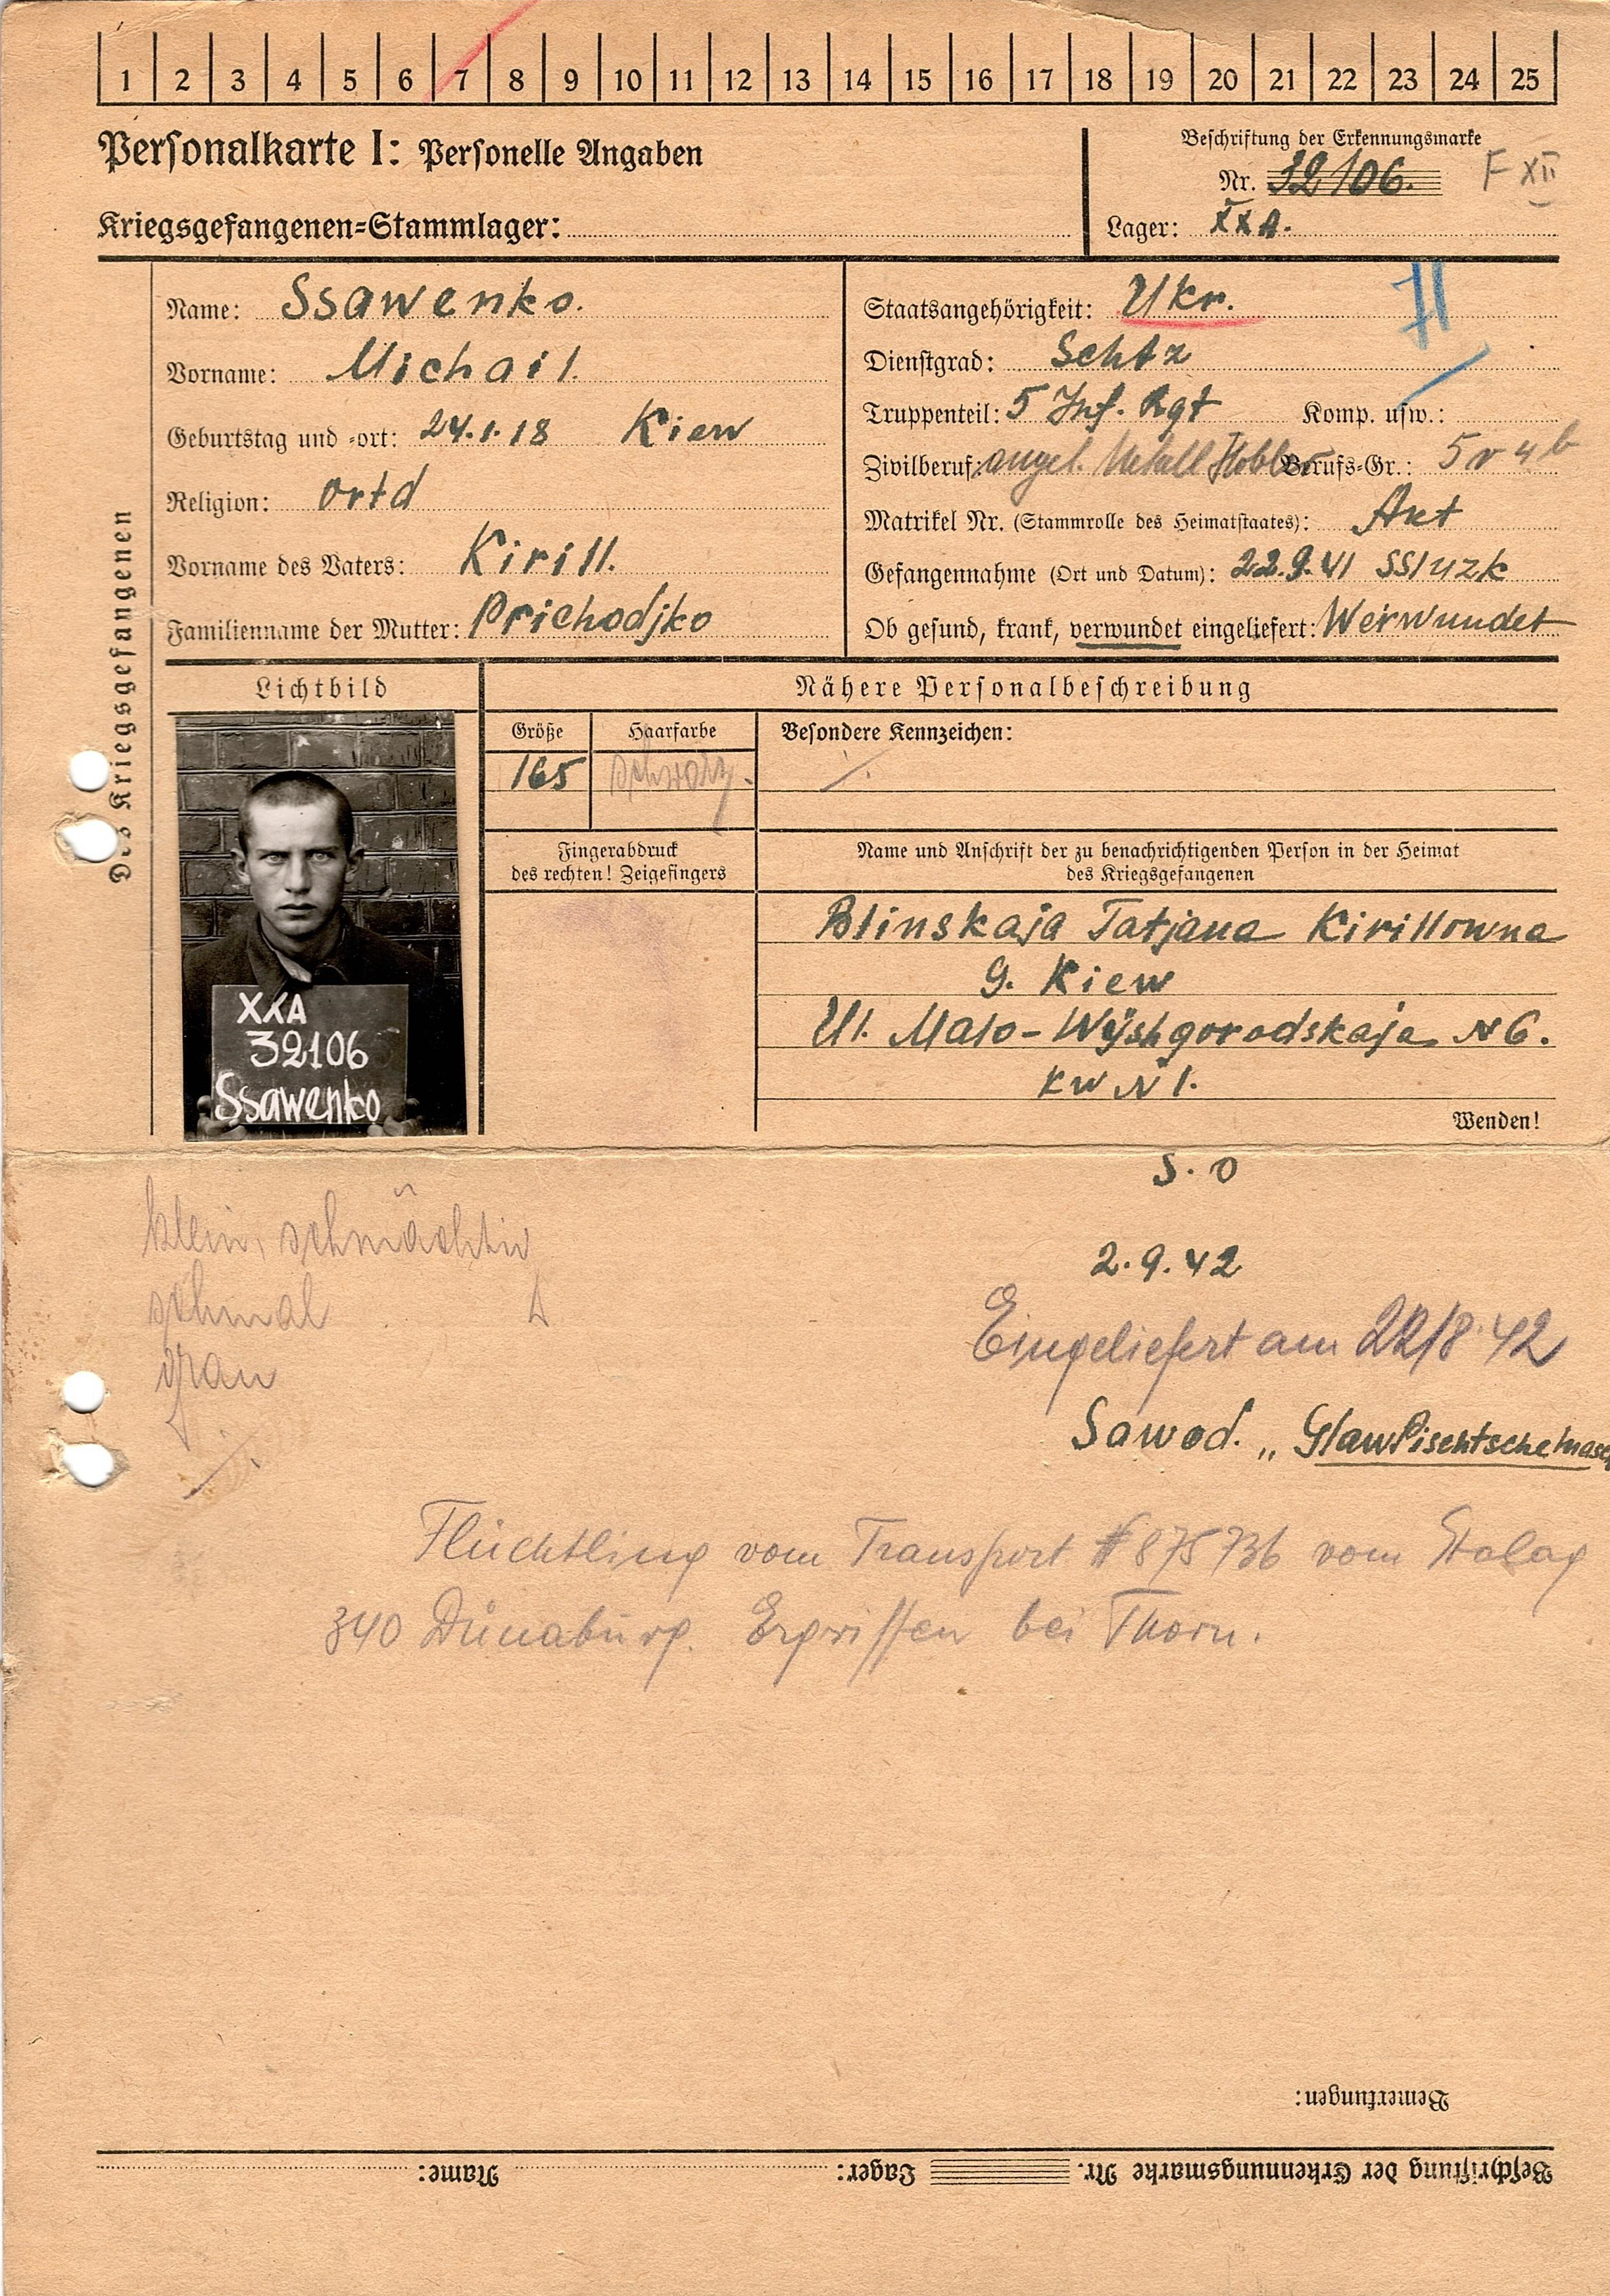 1 2 3 4 5 6 7 8 9 10 11 12 13 14 15 16 17 18 19 20 21 22 23 24 25
Personalkarte I: Personelle Angaben
Kriegsgefangenen=Stammlager:
Beschriftung der Erkennungsmarke
Nr. 32106. F XII
Lager: XXA.
Des Kriegsgefangenen
Name: Ssawenko.
Vorname: Michail.
Geburtstag und =ort: 24.1.18 Kiew
Religion: ortd
Vorname des Vaters: Kirill.
Familienname der Mutter: Prichodjko
Staatsangehörigkeit: Ukr.
Dienstgrad: Schtz
Truppenteil: 5 Inf. Rgt Komp. usw.:
Zivilberuf: angel. Metall Hobler Berufs=Gr.: 5 v 4 b
Matrikel Nr. (Stammrolle des Heimatstaates):
Gefangennahme (Ort und Datum): 22.9.41 SSluzk
Ob gesund, krank, verwundet eingeliefert: Werwundet
Lichtbild
XXA
32106
Ssawenko
Nähere Personalbeschreibung
Größe Haarfarbe Besondere Kennzeichen:
165 schwarz.
Fingerabdruck
des rechten! Zeigefingers
Name und Anschrift der zu benachrichtigenden Person in der Heimat
des Kriegsgefangenen
Blinskaja Tatjana Kirillowna
g. Kiew
Ul. Malo-Wÿshgorodskaja N 6.
kw N 1.
Wenden!
S. O
klein, schmächtig
schmal
grau
2.9.42
Eingeliefert am 22/8 42
Sawod. „GlawPischtschemasch
Flüchtling vom Transport # 875736 vom Stalag
340 Dünaburg. Ergriffen bei Thorn.
Bemerkungen:
Beschriftung der Erkennungsmarke Nr. Lager: Name: